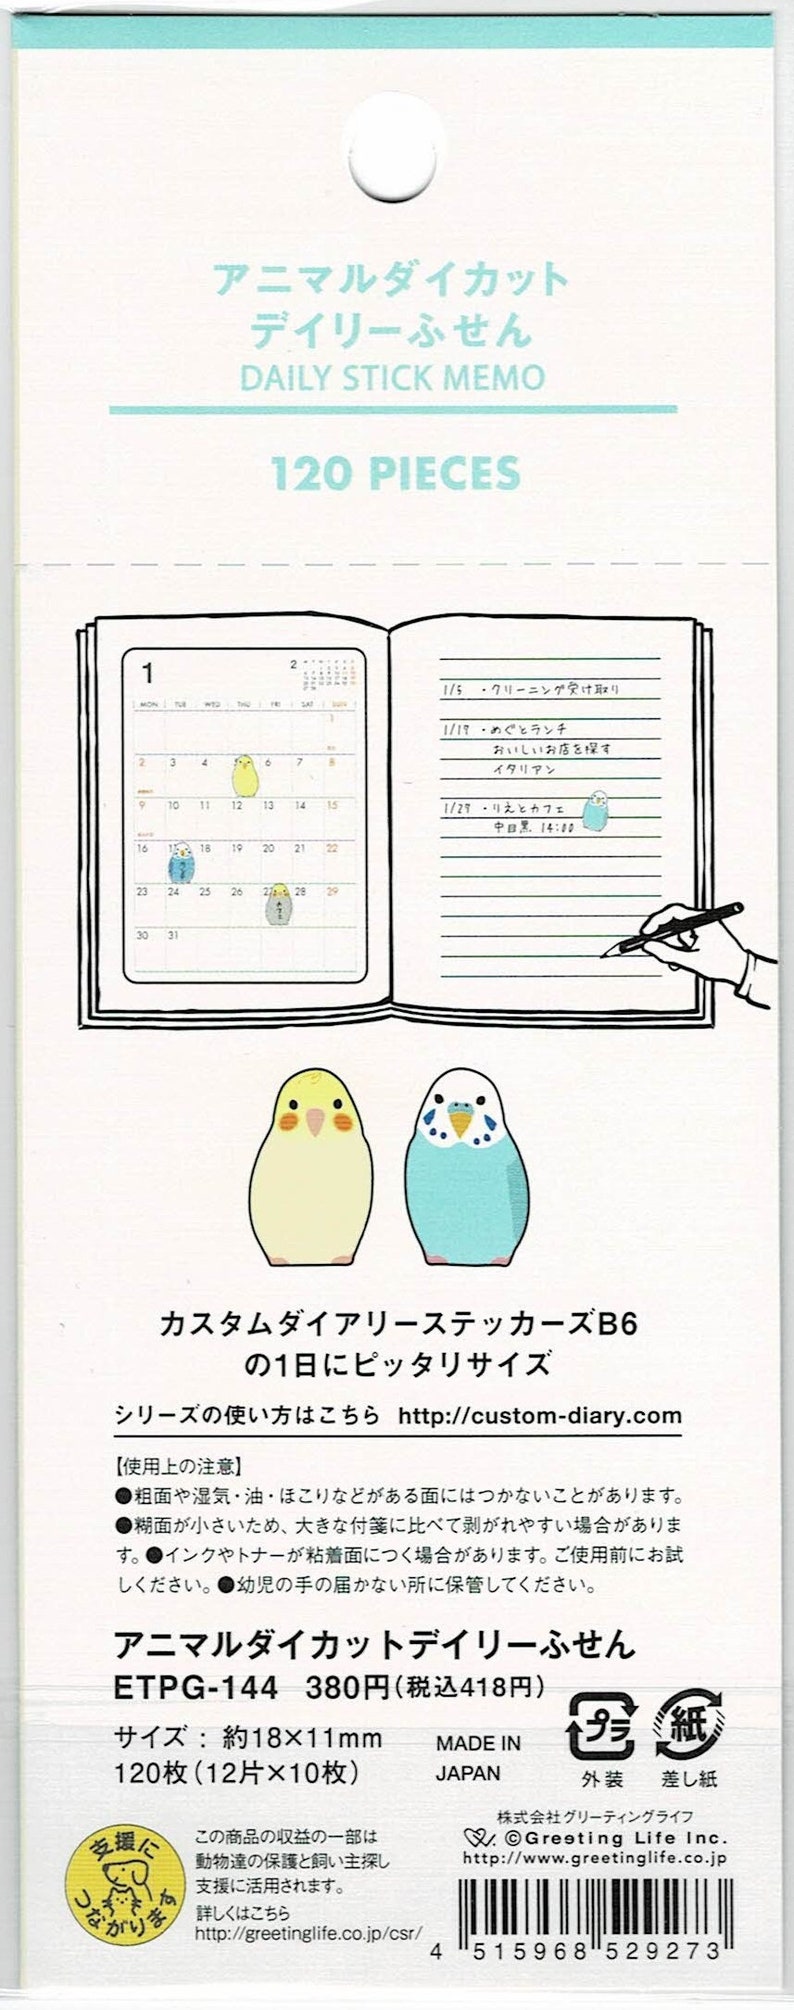 アニマルダイカット
デイリーふせん
DAILY STICK MEMO
120 PIECES
1
2
MON TUE WED THU FRI SAT SUN
1
2 3 4 5 6 7 8
9 10 11 12 13 14 15
16 17 18 19 20 21 22
23 24 25 26 27 28 29
30 31
1/5 ・クリーニング受け取り
1/17 ・めぐとランチ
おいしいお店を探す
イタリアン
1/27 ・りえとカフェ
中目黒 14:00
カスタムダイアリーステッカーズB6
の1日にピッタリサイズ
シリーズの使い方はこちら http://custom-diary.com
【使用上の注意】
●粗面や湿気・油・ほこりなどがある面にはつかないことがあります。
●糊面が小さいため、大きな付箋に比べて剥がれやすい場合がありま
す。●インクやトナーが粘着面につく場合があります。ご使用前にお試
しください。●幼児の手の届かない所に保管してください。
アニマルダイカットデイリーふせん
ETPG-144 380円(税込418円)
サイズ : 約18×11mm
120枚(12片×10枚)
MADE IN
JAPAN
プラ
外装
紙
差し紙
支援に
つながります
この商品の収益の一部は
動物達の保護と飼い主探し
支援に活用されます。
詳しくはこちら
http://greetinglife.co.jp/csr/
株式会社グリーティングライフ
©Greeting Life Inc.
http://www.greetinglife.co.jp
4 515968 529273